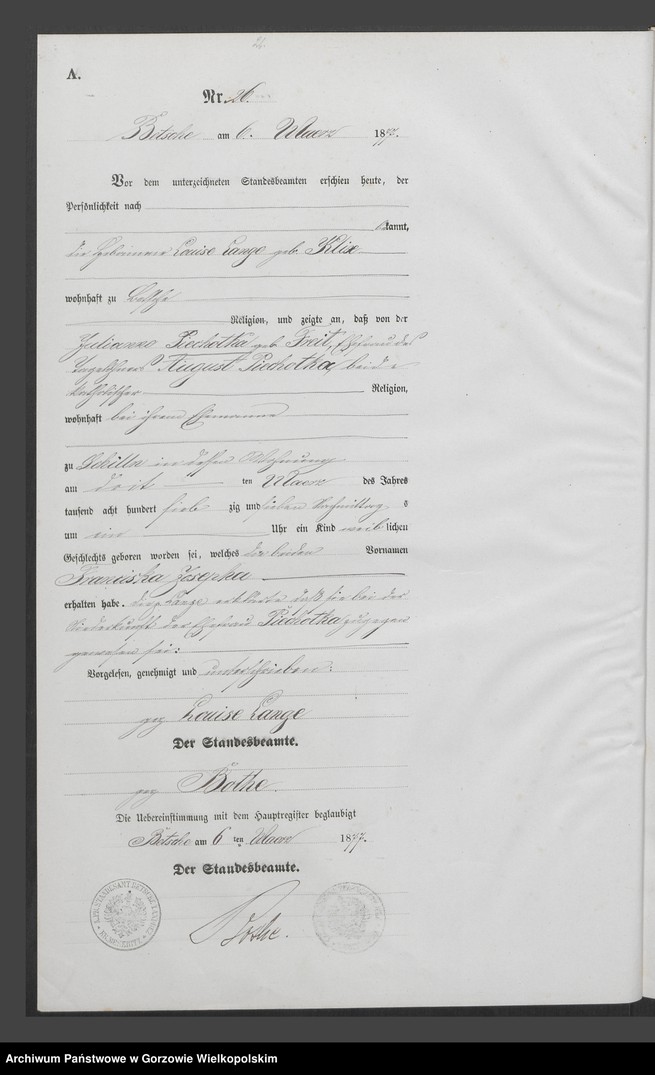 A.
Nr. 26.
Betsche am 6. Maerz 1877.
Vor dem unterzeichneten Standesbeamten erschien heute, der
Persönlichkeit nach
kannt,
die Hebeamme Louise Lange geb. Klix
wohnhaft zu Betsche
Religion, und zeigte an, daß von der
Julianna Piechotka geb. Freit, Ehefrau des
August Piechotka, beide
katholischer Religion,
wohnhaft bei ihrem Ehemanne
zu Schilln in dessen Wohnung
am drit ten Maerz des Jahres
tausend acht hundert sieb zig und sieben Nachmittag s
um ein Uhr ein Kind weib lichen
Geschlechts geboren worden sei, welches die beiden Vornamen
Franziska Josepha
erhalten habe. Lange erklärte daß sie bei der
Niederkunft der Ehefrau Piechotka zugegen
gewesen sei:
Vorgelesen, genehmigt und unterschrieben:
gez Louise Lange
Der Standesbeamte.
gez Bothe.
Die Uebereinstimmung mit dem Hauptregister beglaubigt
Betsche am 6 ten Maerz 1877.
Der Standesbeamte.
Bothe.
Archiwum Państwowe w Gorzowie Wielkopolskim